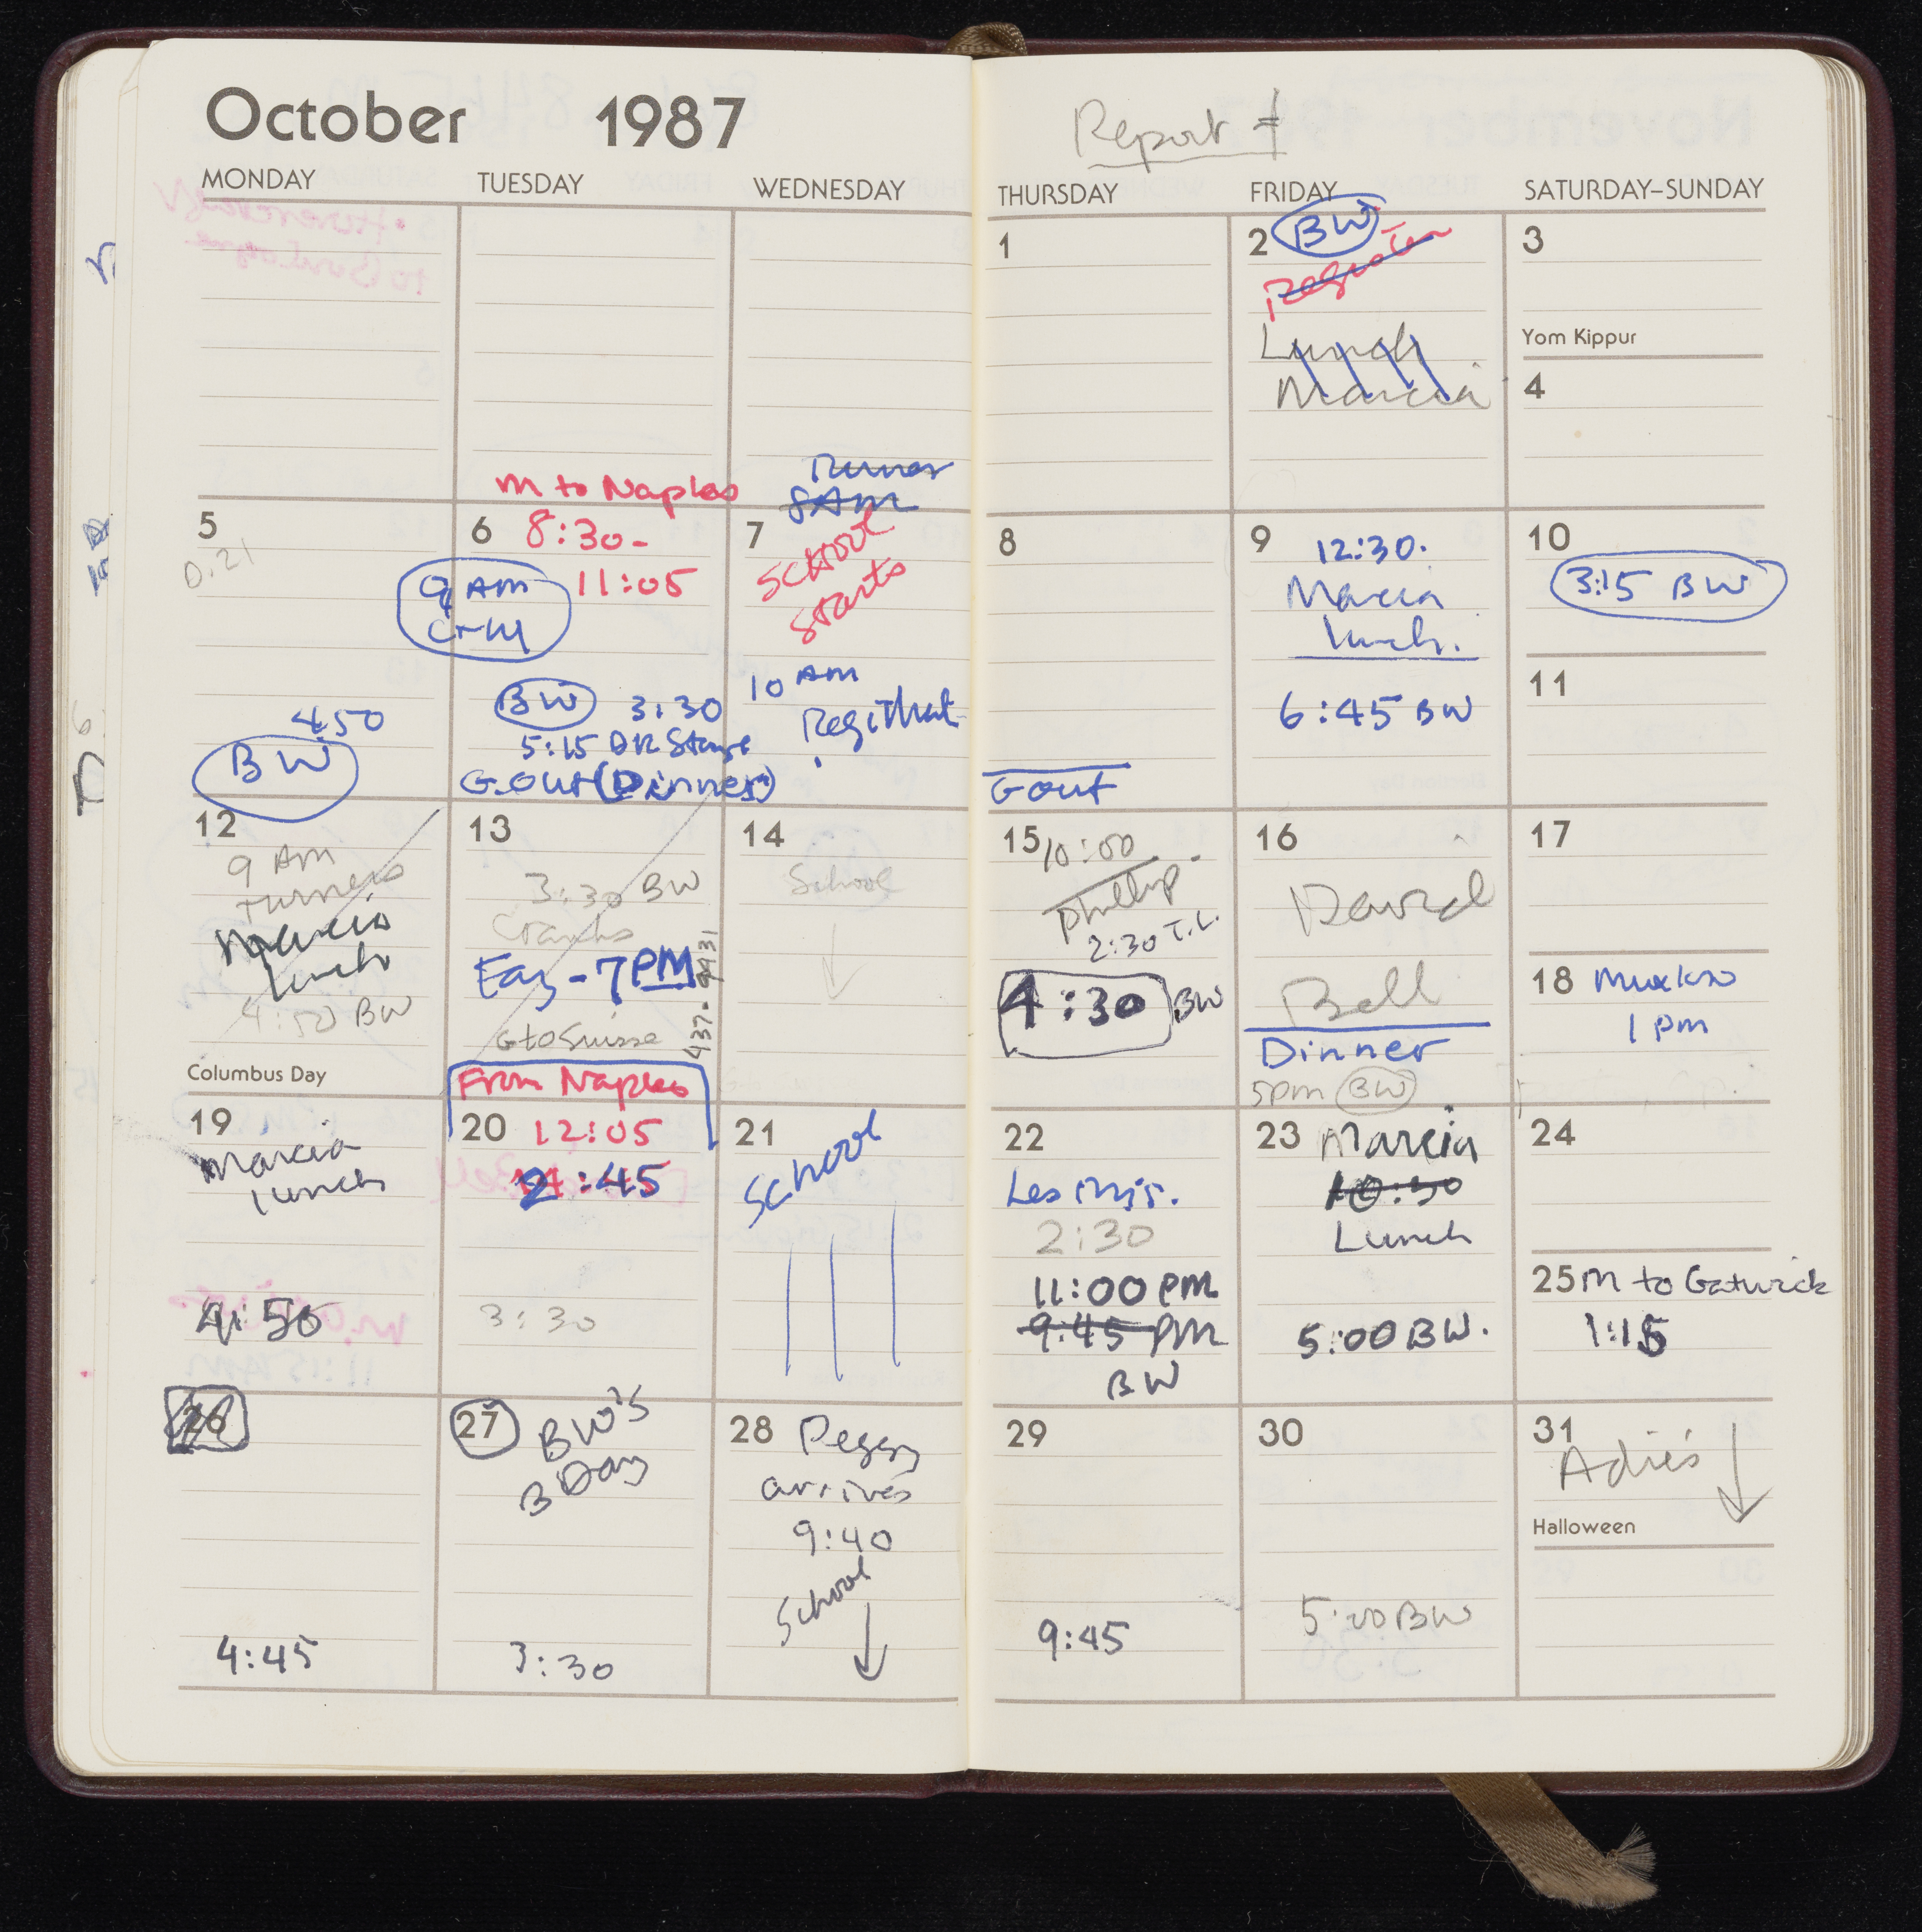 October 1987
Report
MONDAY TUESDAY WEDNESDAY THURSDAY FRIDAY SATURDAY–SUNDAY
1
2 BW
Register
Lunch
Marcia
3
Yom Kippur
4
5
D.21
450
BW
M to Naples
6 8:30-
11:05
9 AM
BW 3:30
5:15 DR
G. Out (Dinner)
8 AM
7
School
starts
10 AM
8
G out
9 12:30.
Marcia
lunch.
6:45 BW
10
3:15 BW
11
12
9 AM
Turners
Marcia
lunch
4:50 BW
Columbus Day
13
3:30 BW
- 7 PM
G to Suisse
437-9931
14
School
15 10:00
Phillip
2:30 T.L.
4:30 BW
16
David
Bell
Dinner
5pm BW
17
18
1 pm
19
Marcia
lunch
4:50
From Naples
20 12:05
2:45
3:30
21
School
22
Les Mis.
2:30
11:00 PM
9:45 PM
BW
23 Marcia
10:30
Lunch
5:00 BW.
24
25 M to Gatwick
1:15
26
4:45
27 BW'S
B Day
3:30
28 Peggy
arrives
9:40
School
29
9:45
30
5:00 BW
31
Adie's
Halloween